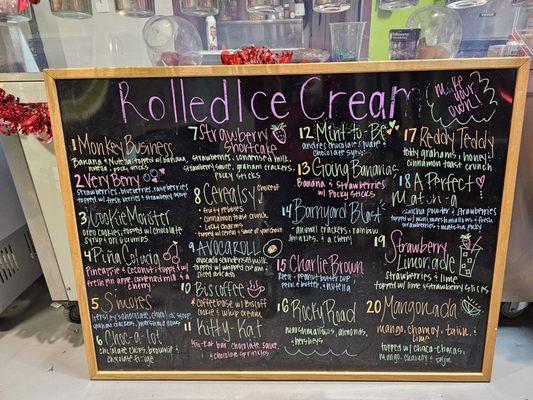 Rolled Ice Cream
make your own!
1 Monkey Business
Banana & Nutella topped w/ banana, nutella, pocky sticks
2 Very Berry
strawberries, blueberries, raspberries
topped w/ fresh berries & strawberry
3 Cookie Monster
oreo cookies, topped w/ chocolate
syrup & oreo crumbs
4 Piña Colada
Pineapple & coconut topped w/
pineapple condensed milk &
cherry
5 S'mores
graham crackers, marshmallows
6 Choc-a-lot
chocolate chips, brownie &
chocolate fudge
7 Strawberry
Shortcake
strawberries, condensed milk,
strawberry sauce, graham crackers,
pocky sticks
8 Cerealsly choice of
- fruity pebbles
- cinnamon toast crunch
- Lucky charms
topped w/ cereal & sauce of your choice
9 AVOCAROLL
avocado, strawberries & milk
topped w/ whipped cream
& sliced avocado
10 Biscoffee
coffee base w/ Biscoff
cookie & whip cream
11 Kitty-Kat
Kit-kat bar, chocolate sauce,
& chocolate sprinkles
12 Mint to Be
andes chocolate squares &
chocolate syrup
13 Going Bananas
Banana & strawberries
w/ pocky sticks
14 Barnyard Blast
animal crackers, rainbow
sprinkles & a cherry
15 Charlie Brown
Reese's peanut butter cup
peanut butter, nutella
16 Rocky Road
marshmallows, almonds,
& hersheys
17 Teddy Teddy
teddy grahams, honey &
cinnamon toast crunch
18 A Perfect
Match-a
matcha powder & strawberries
topped w/ mini marshmallows & fresh
strawberries & matcha
19 Strawberry
Limonade
Strawberries & lime
topped w/ lime & strawberry sticks
20 Mangonada
mango, chamoy, tajin &
lime
topped w/ chaca-chacas,
mango, chamoy & tajin